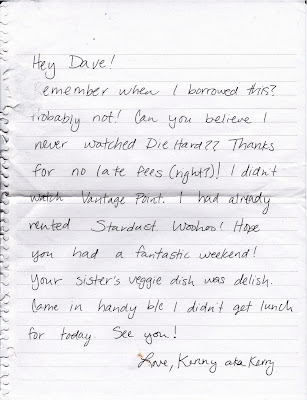 Hey Dave!
Remember when I borrowed this?
Probably not! Can you believe I
never watched Die Hard?? Thanks
for no late fees (right?)! I didn't
watch Vantage Point. I had already
rented Stardust. Woohoo! Hope
you had a fantastic weekend!
Your sister's veggie dish was delish.
Came in handy b/c I didn't get lunch
for today. See you!
Love, Kenny aka Kerry